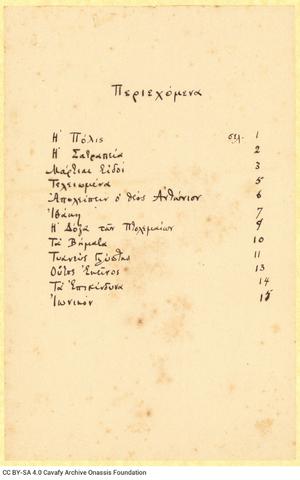 Περιεχόμενα
Ἡ Πόλις σελ. 1
Ἡ Σατραπεία 2
Μάρτιαι Εἰδοί 3
Τελειωμένα 5
Ἀπολείπειν ὁ θεὸς Ἀντώνιον 6
Ἰθάκη 7
Ἡ Δόξα τῶν Πτολεμαίων 9
Τὰ Βήματα 10
Τυανεὺς Γλύπτης 11
Οὗτος Ἐκεῖνος 13
Τὰ Ἐπικίνδυνα 14
Ἰωνικόν 15
CC BY-SA 4.0 Cavafy Archive Onassis Foundation